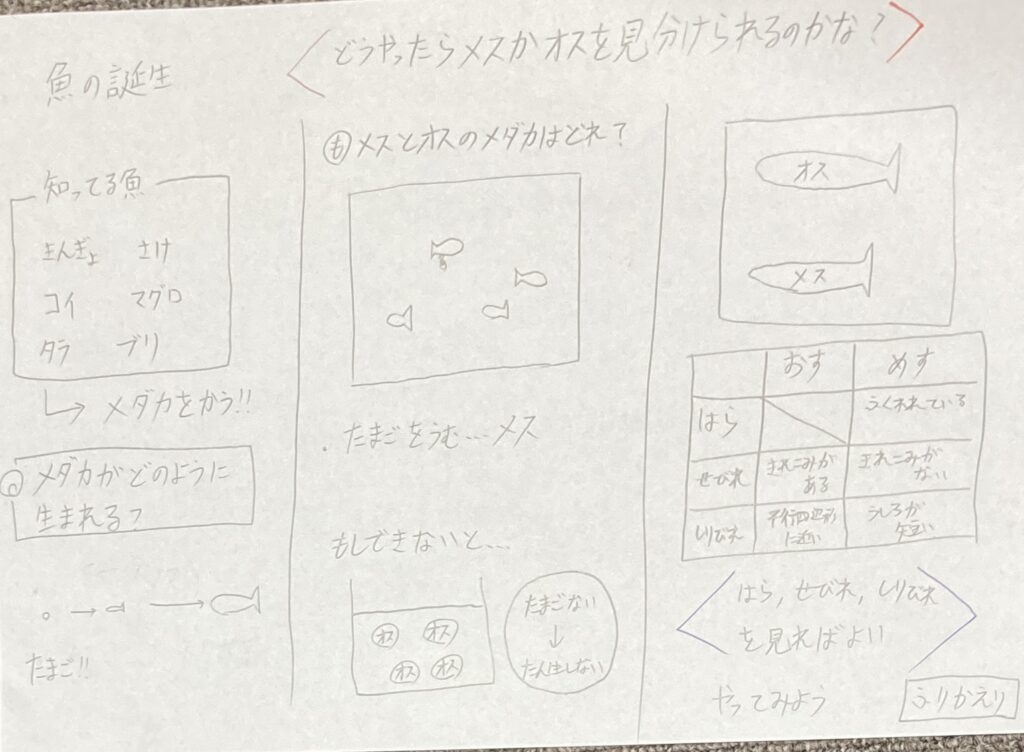 魚の誕生
どうやったらメスかオスを見分けられるのかな?
知ってる魚
きんぎょ さけ
コイ マグロ
タラ ブリ
メダカをかう!!
メダカがどのように
生まれる?
たまご!!
も メスとオスのメダカはどれ?
・たまごをうむ…メス
もしできないと…
オス オス
オス オス
たまごない
↓
たん生しない
オス
メス
おす めす
はら ふくれている
せびれ きれこみがある きれこみがない
しりびれ 平行四辺形に近い うしろが短い
はら,せびれ,しりびれ
を見ればよい
やってみよう
ふりかえり